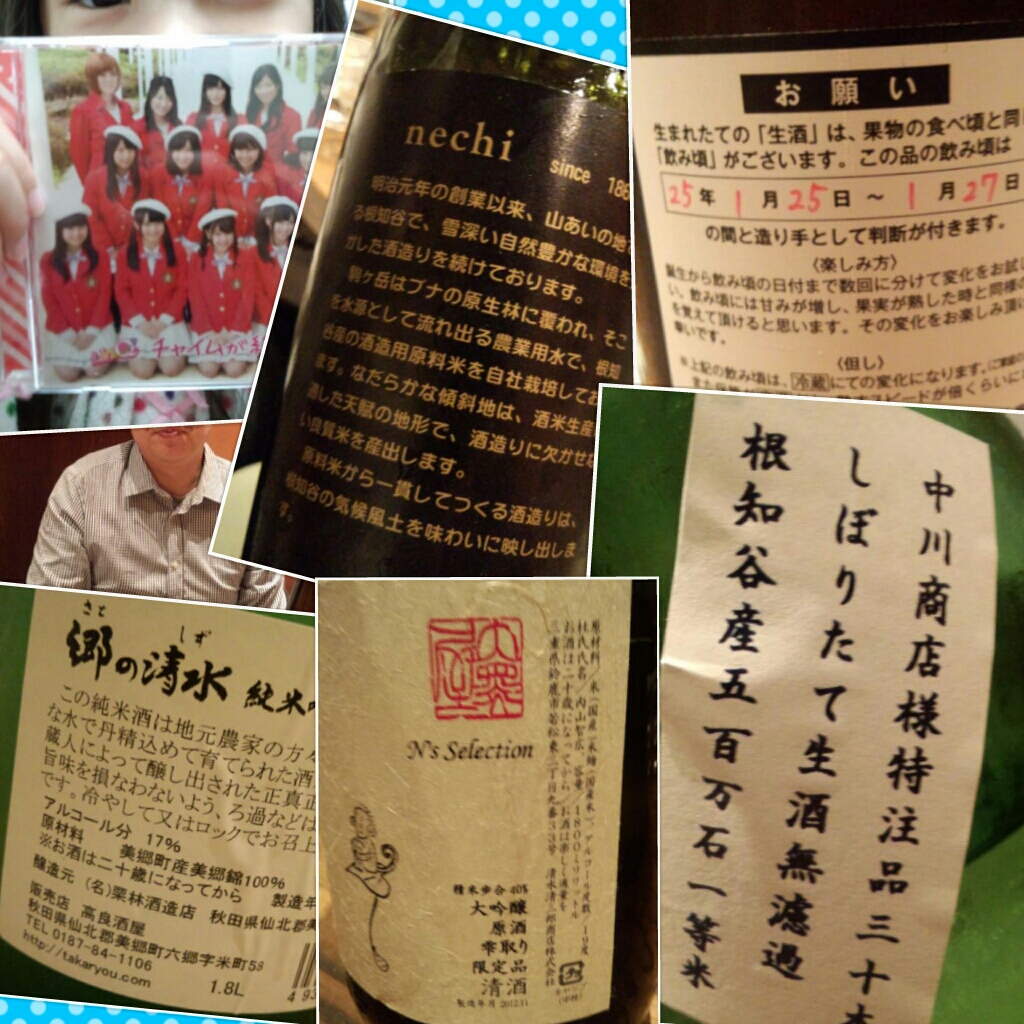 チャイムが
nechi
since 186
明治元年の創業以来、山あいの地
る根知谷で、雪深い自然豊かな環境を
かした酒造りを続けております。
駒ヶ岳はブナの原生林に覆われ、そこ
を水源として流れ出る農業用水で、根知
谷産の酒造用原料米を自社栽培してお
ます。なだらかな傾斜地は、酒米生産
適した天賦の地形で、酒造りに欠かせな
い良質米を産出します。
原料米から一貫してつくる酒造りは、
根知谷の気候風土を味わいに映し出しま
す。
お願い
生まれたての「生酒」は、果物の食べ頃と同
「飲み頃」がございます。この品の飲み頃は
25年 1月25日 ~ 1月27日
の間と造り手として判断が付きます。
〈楽しみ方〉
誕生から飲み頃の日付まで数回に分けて変化をお試し
い。飲み頃には甘みが増し、果実が熟した時と同様の
を覚えて頂けると思います。その変化をお楽しみ頂
幸いです。
〈但し〉
※上記の飲み頃は、冷蔵にての変化になります。
中川商店様特注品三十本
しぼりたて生酒無濾過
根知谷産五百万石一等米
さと しず
郷の清水 純米吟
この純米酒は地元農家の方々
な水で丹精込めて育てられた酒
蔵人によって醸し出された正真正
旨味を損なわないよう、ろ過などは
です。冷やして又はロックでお召上
アルコール分 17%
原材料 美郷町産美郷錦100%
※お酒は二十歳になってから 製造年
醸造元 (名)栗林酒造店 秋田県仙北郡美
販売店 高良酒屋
秋田県仙北郡美郷町六郷字米町58
TEL 0187-84-1106
http://takaryou.com
1.8L
4 93
N's Selection
原材料/米(国産)、米麹(国産米)、アルコール度数/19度
杜氏氏名/内山智広、容量/1800ミリリットル
お酒は二十歳になってから/お酒は楽しく適量を
三重県鈴鹿市若松東三丁目九番33号 清水清三郎商店株式会社
精米歩合40%
大吟醸
原酒
雫取り
限定品
清酒
製造年月 2012.11